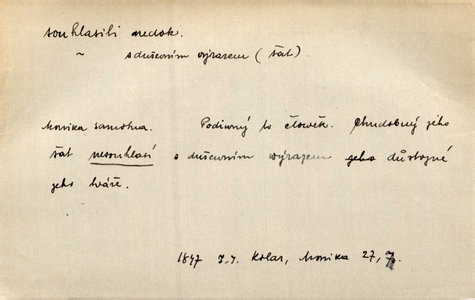 souhlasiti nedok.
~ s duševním výrazem (šat).
Monika samotna. Podivný to člověk. Chudobný jeho
šat nesouhlasí s duševním výrazem jeho důstojné
jeho tváře.
1847 J. J. Kolar, Monika 27, 7.